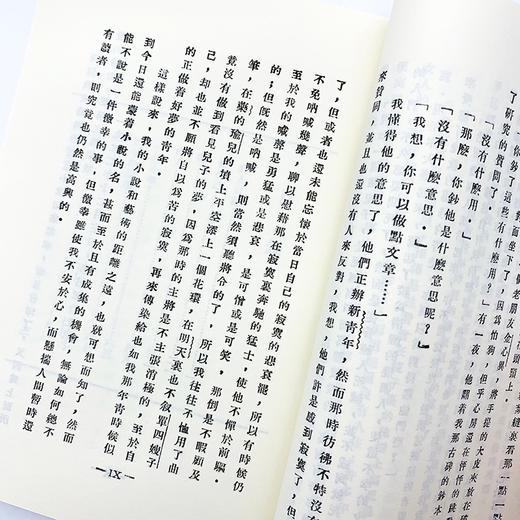 縫裏看那一點一點
頭頸上．
老朋友金心異，將手提的大皮夾放在破
面坐下了，因爲怕狗，似乎心房還在怦怦的跳
鈔了這些有什麼用？」有一夜，他翻着我那古碑的鈔本
了研究的質問了．
「沒有什麼用．」
「那麼，你鈔他是什麼意思呢？」
「沒有什麼意思．」
「我想，你可以做點文章……」
我懂得他的意思了，他們正辦新青年，然而那時彷彿不特沒有
來贊同，並且也還沒有人來反對，我想，他們許是感到寂寞了，但
了，但或者也還未能忘懷於當日自己的寂寞的悲哀罷，所以有時候仍
不免吶喊幾聲，聊以慰藉那在寂寞裏奔馳的猛士，使他不憚於前驅．
至於我的喊聲是勇猛或是悲哀，是可憎或是可笑，那倒是不暇顧及
的；但旣然是吶喊，則當然須聽將令的了，所以我往往不恤用了曲
筆，在藥的瑜兒的墳上平空添上一個花環，在明天裏也不敘單四嫂子
竟沒有做到看見兒子的夢，因爲那時的主將是不主張消極的．至於自
己，却也並不願將自以爲苦的寂寞，再來傳染給也如我那年青時候似
的正做着好夢的青年．
這樣說來，我的小說和藝術的距離之遠，也就可想而知了，然而
到今日還能蒙着小說的名，甚而至於且有成集的機會，無論如何總不
能不說是一件徼幸的事，但徼幸雖使我不安於心，而懸揣人間暫時還
有讀者，則究竟也仍然是高興的．
— IX —